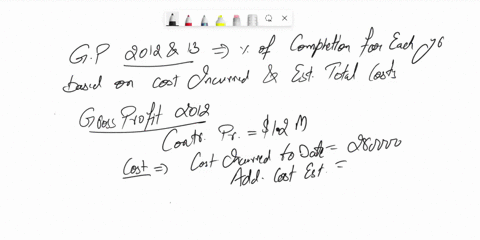 G.P 2012 & 13 ⇒ % of Completion for Each yr
based on cost Incurred & Est. Total Costs
Gross Profit 2012
Contr. Pr. = $1.2 M
Cost ⇒ Cost Incurred to Date = 280000
Add. Cost Est. =